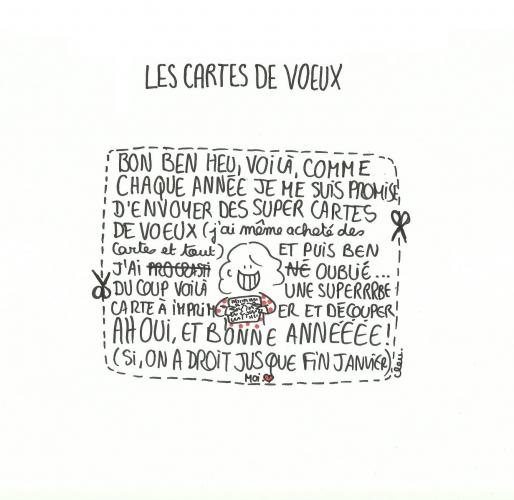 LES CARTES DE VOEUX
BON BEN HEU, VOILÀ, COMME
CHAQUE ANNÉE JE ME SUIS PROMISE
D'ENVOYER DES SUPER CARTES
DE VOEUX (j'ai même acheté des
cartes et tout) ET PUIS BEN
J'AI PROCRASTI NÉ OUBLIÉ...
DU COUP VOILÀ UNE SUPERRRBE
CARTE À IMPRIM ER ET DÉCOUPER
AH OUI, ET BONNE ANNÉÉÉE!
(SI, ON A DROIT JUSQUE FIN JANVIER)
MOI